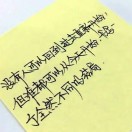 没有人可以回到过去重新开始
但谁都可以从今天开始 书写
一个全然不同的结局